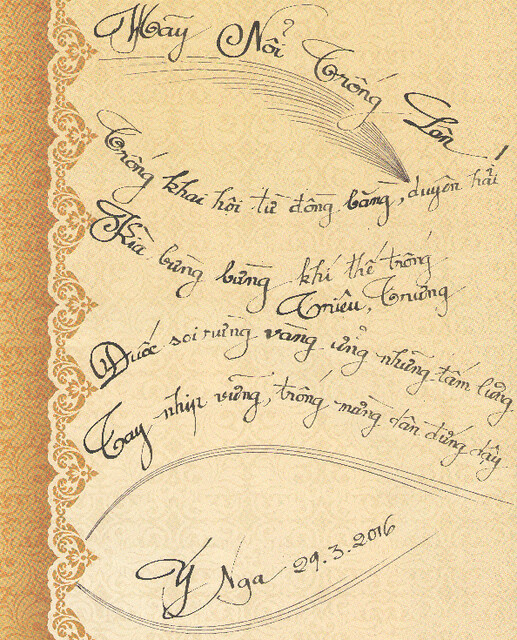 Hãy Nổi Trống Lên!
Trống khai hội từ đồng bằng, duyên hải
Kìa bừng bừng khí thế trống
Triệu, Trưng
Đuốc soi rừng vàng ửng những tấm lưng
Tay nhịp vững, trống mừng dân đứng dậy
Ý Nga 29.3.2016